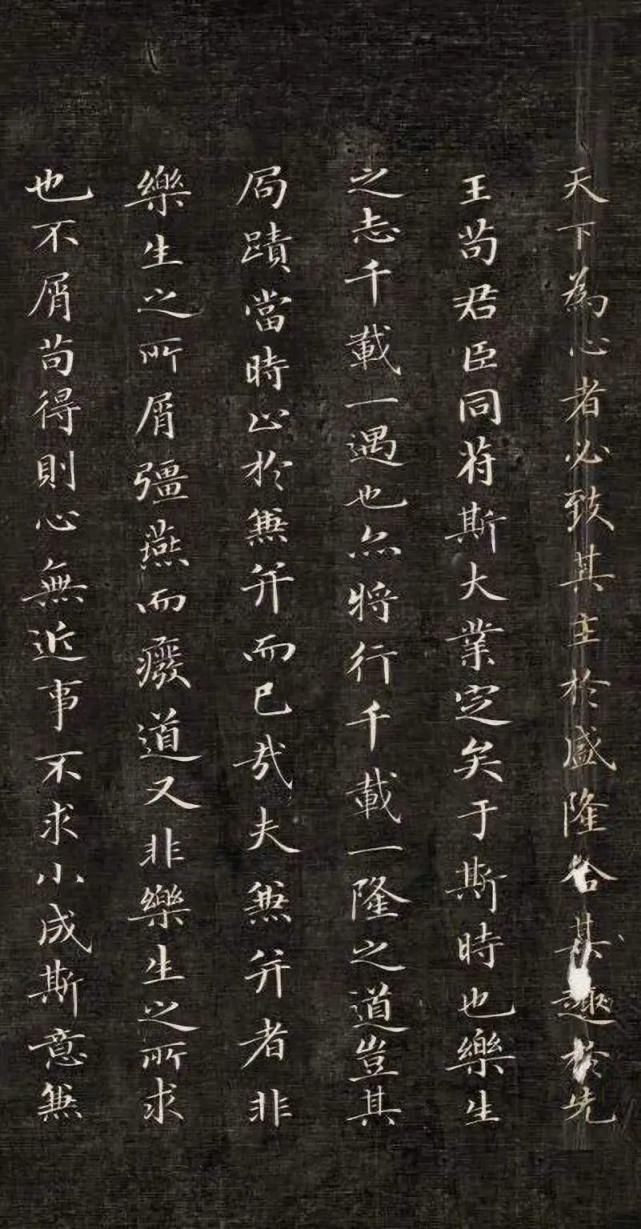 天下為心者必致其主於盛隆合其趣於先
王苟君臣同苻斯大業定矣于斯時也樂生
之志千載一遇也亦將行千載一隆之道豈其
局蹟當時止於兼并而已哉夫兼并者非
樂生之所屑彊燕而廢道又非樂生之所求
也不屑苟得則心無近事不求小成斯意兼